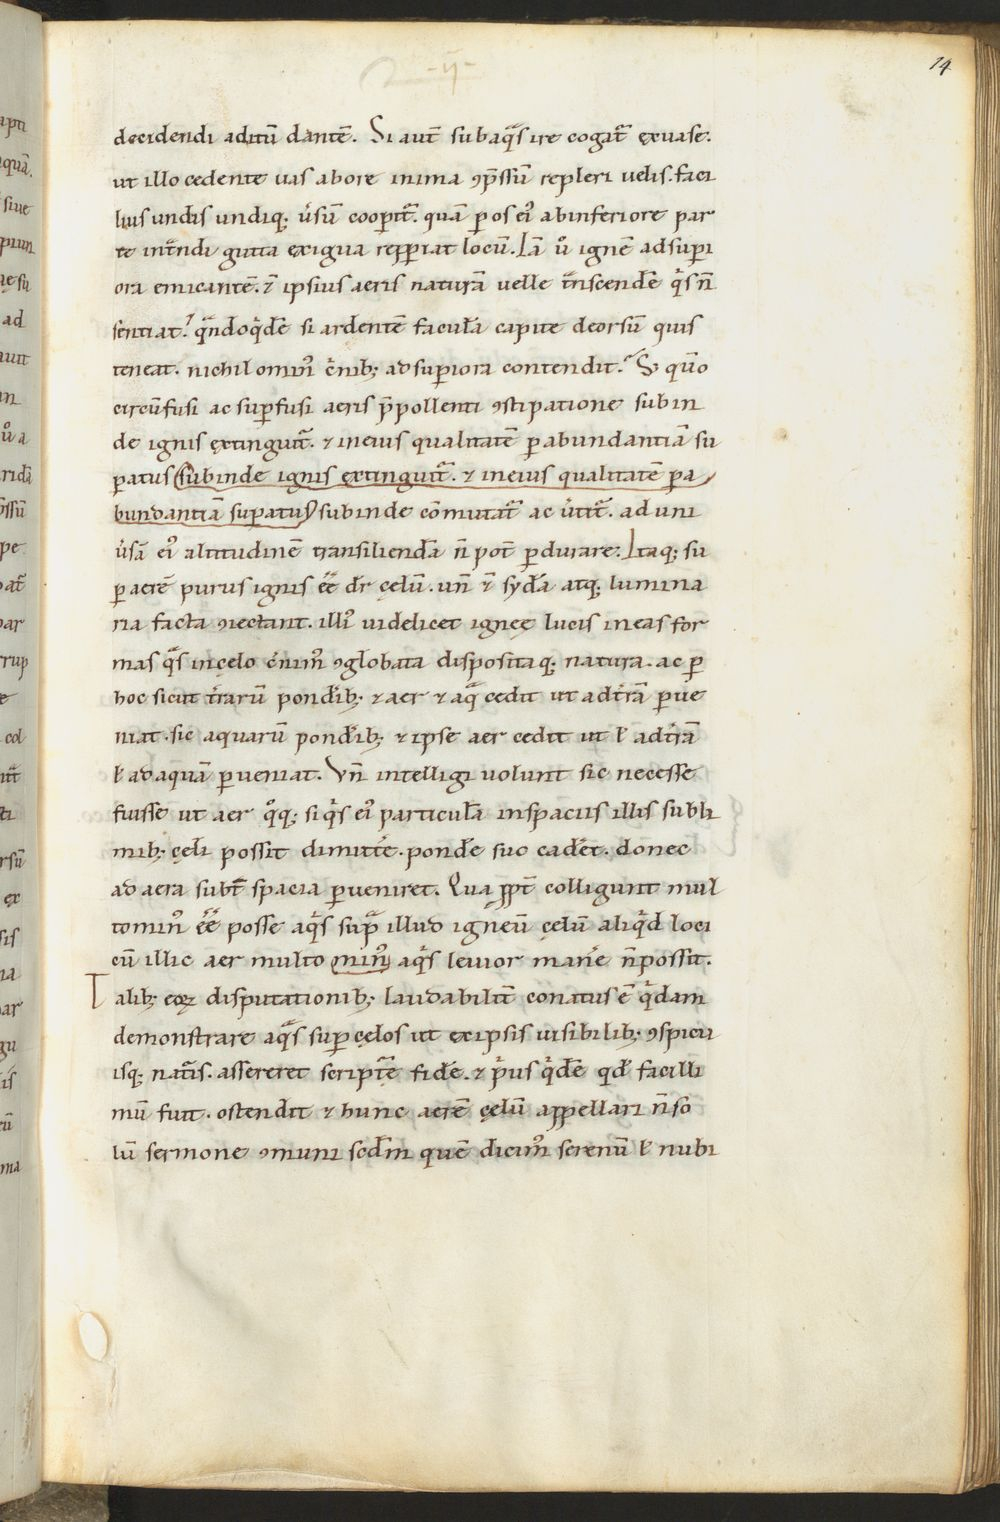 14
decidendi aditū dantē. Si aut̄ subaq̄s ire cogat̄ ęxuase.
ut illo cedente uas abore inima ꝯp̄ssū repleri uelis. faci
lius undis undiq; ūsū cooꝑit̄. quā ꝑ os eiꝰ abinferiore par
te int̄ndi gutta exigua repꝑiat locū. Iā ū ignē adsuꝑi
ora emicantē. ⁊ ipsius aeris naturā uelle t̄nscendē q̄s n̄
sentiat? q̄ndoq̄dē si ardentē faculā capite deorsū quis
teneat. nichilominꝰ c̄nib; adsuꝑiora contendit. S; quō
circūfusi ac suꝑfusi aeris p̄pollenti ꝯstipatione subin
de ignis extinguit̄. ⁊ ineius qualitatē ꝑabundantiā su
ꝑatus subinde ignis extinguit̄. ⁊ ineius qualitatē ꝑa
bundantiā suꝑatus subinde cōmutat̄ ac ūtit̄. ad uni
ūsā eiꝰ altitudinē transiliendā n̄ pot̄ ꝑdurare. Itaq; su
ꝑ aerē purus ignis ēē dr̄ cęlū. un̄ ⁊ sydā atq; lumina
ria facta ꝯiectant. illiꝰ uidelicet ignęę lucis ineas for
mas q̄s incęlo c̄nimꝰ ꝯglobata dispositaq; natura. ac ꝑ
hoc sicut t̄rarū pondīb; ⁊ aer ⁊ aq̄ cedit ut adt̄rā ꝑue
niat. sic aquarū pondīb; ⁊ ipse aer cedit ut ł adt̄rā
ł ad aquā ꝑueniat. Vn̄ intelligi uolunt sic necesse
fuisse ut aer q̊q; siq̄s eiꝰ particulā inspaciis illis subli
mib; cęli possit dimittē. pondē suo cadēt. donec
ad aera subt̄ spacia ꝑueniret. Qua ꝓpt̄ colligunt mul
tominꝰ ēē posse aq̄s sup̄ illud igneū cęlū aliq̄d loci
cū illic aer multo minꝰ aq̄s leuior manē n̄ possit.
Talib; eoꝝ disputationib; laudabilit̄ conatus ē q̄dam
demonstrare aq̄s suꝑ cęlos ut exipsis uisibilib; ꝯspicu
isq; nat̄is. assereret script̄ę fidē. ⁊ p̄us q̄dē qđ facilli
mū fuit. ostendit ⁊ hunc aerē cęlū appellari n̄ so
lū sermone ꝯmuni scdm̄ quē dicimꝰ serenū ł nubi